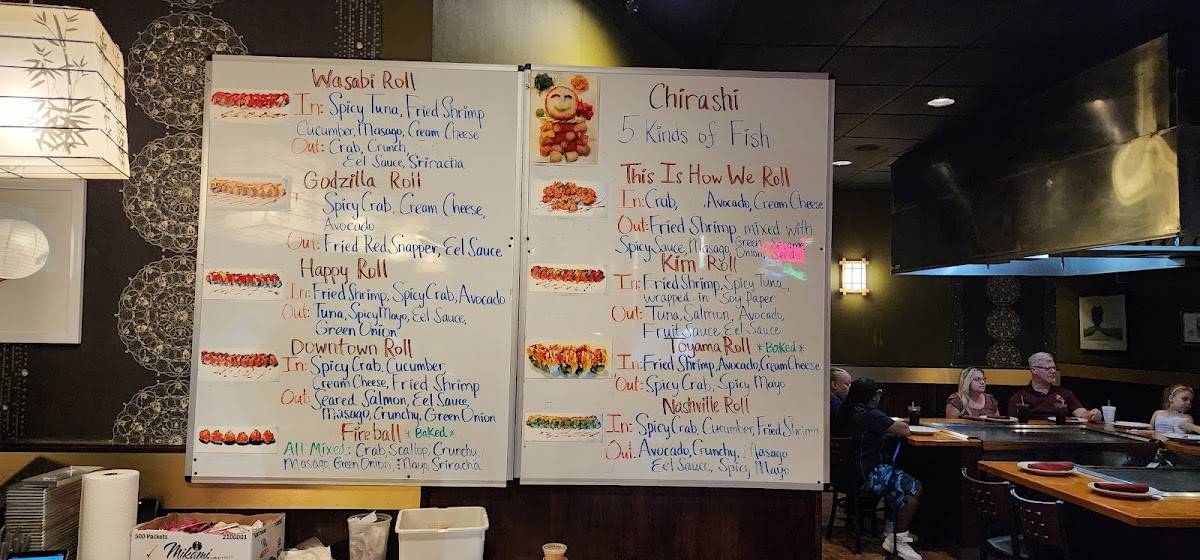 Wasabi Roll
In: Spicy Tuna, Fried Shrimp
Cucumber, Masago, Cream Cheese
Out: Crab, Crunch,
Eel Sauce, Sriracha
Godzilla Roll
Spicy Crab, Cream Cheese,
Avocado
Out: Fried Red Snapper, Eel Sauce
Happy Roll
In: Fried Shrimp, Spicy Crab, Avocado
Out: Tuna, Spicy Mayo, Eel Sauce,
Green Onion
Downtown Roll
In: Spicy Crab, Cucumber,
Cream Cheese, Fried Shrimp
Out: Seared Salmon, Eel Sauce,
Masago, Crunchy, Green Onion
Fireball *Baked*
All Mixed: Crab, Scallop, Crunchy,
Masago, Green Onion, Mayo, Sriracha
Chirashi
5 Kinds of Fish
This Is How We Roll
In: Crab, Avocado, Cream Cheese
Out: Fried Shrimp, mixed with
Spicy Sauce, Masago, Green Onion, Sesame Seeds
Kim Roll
In: Fried Shrimp, Spicy Tuna,
wrapped in Soy Paper
Out: Tuna, Salmon, Avocado,
Fruit Sauce, Eel Sauce
Toyama Roll *Baked*
In: Fried Shrimp, Avocado, Cream Cheese
Out: Spicy Crab, Spicy Mayo
Nashville Roll
In: Spicy Crab, Cucumber, Fried Shrimp
Out: Avocado, Crunchy, Masago
Eel Sauce, Spicy Mayo
500 Packets 2100001
Mikami